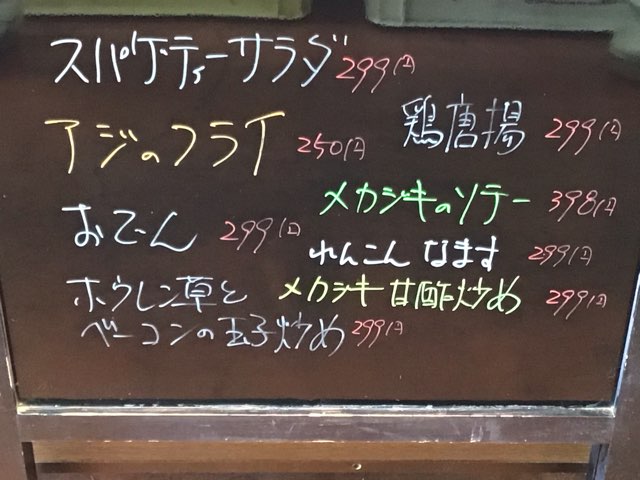 スパゲティーサラダ 299円
アジのフライ 250円
鶏唐揚 299円
メカジキのソテー 398円
おでん 299円
れんこん なます 299円
メカジキ甘酢炒め 299円
ホウレン草と
ベーコンの玉子炒め 299円